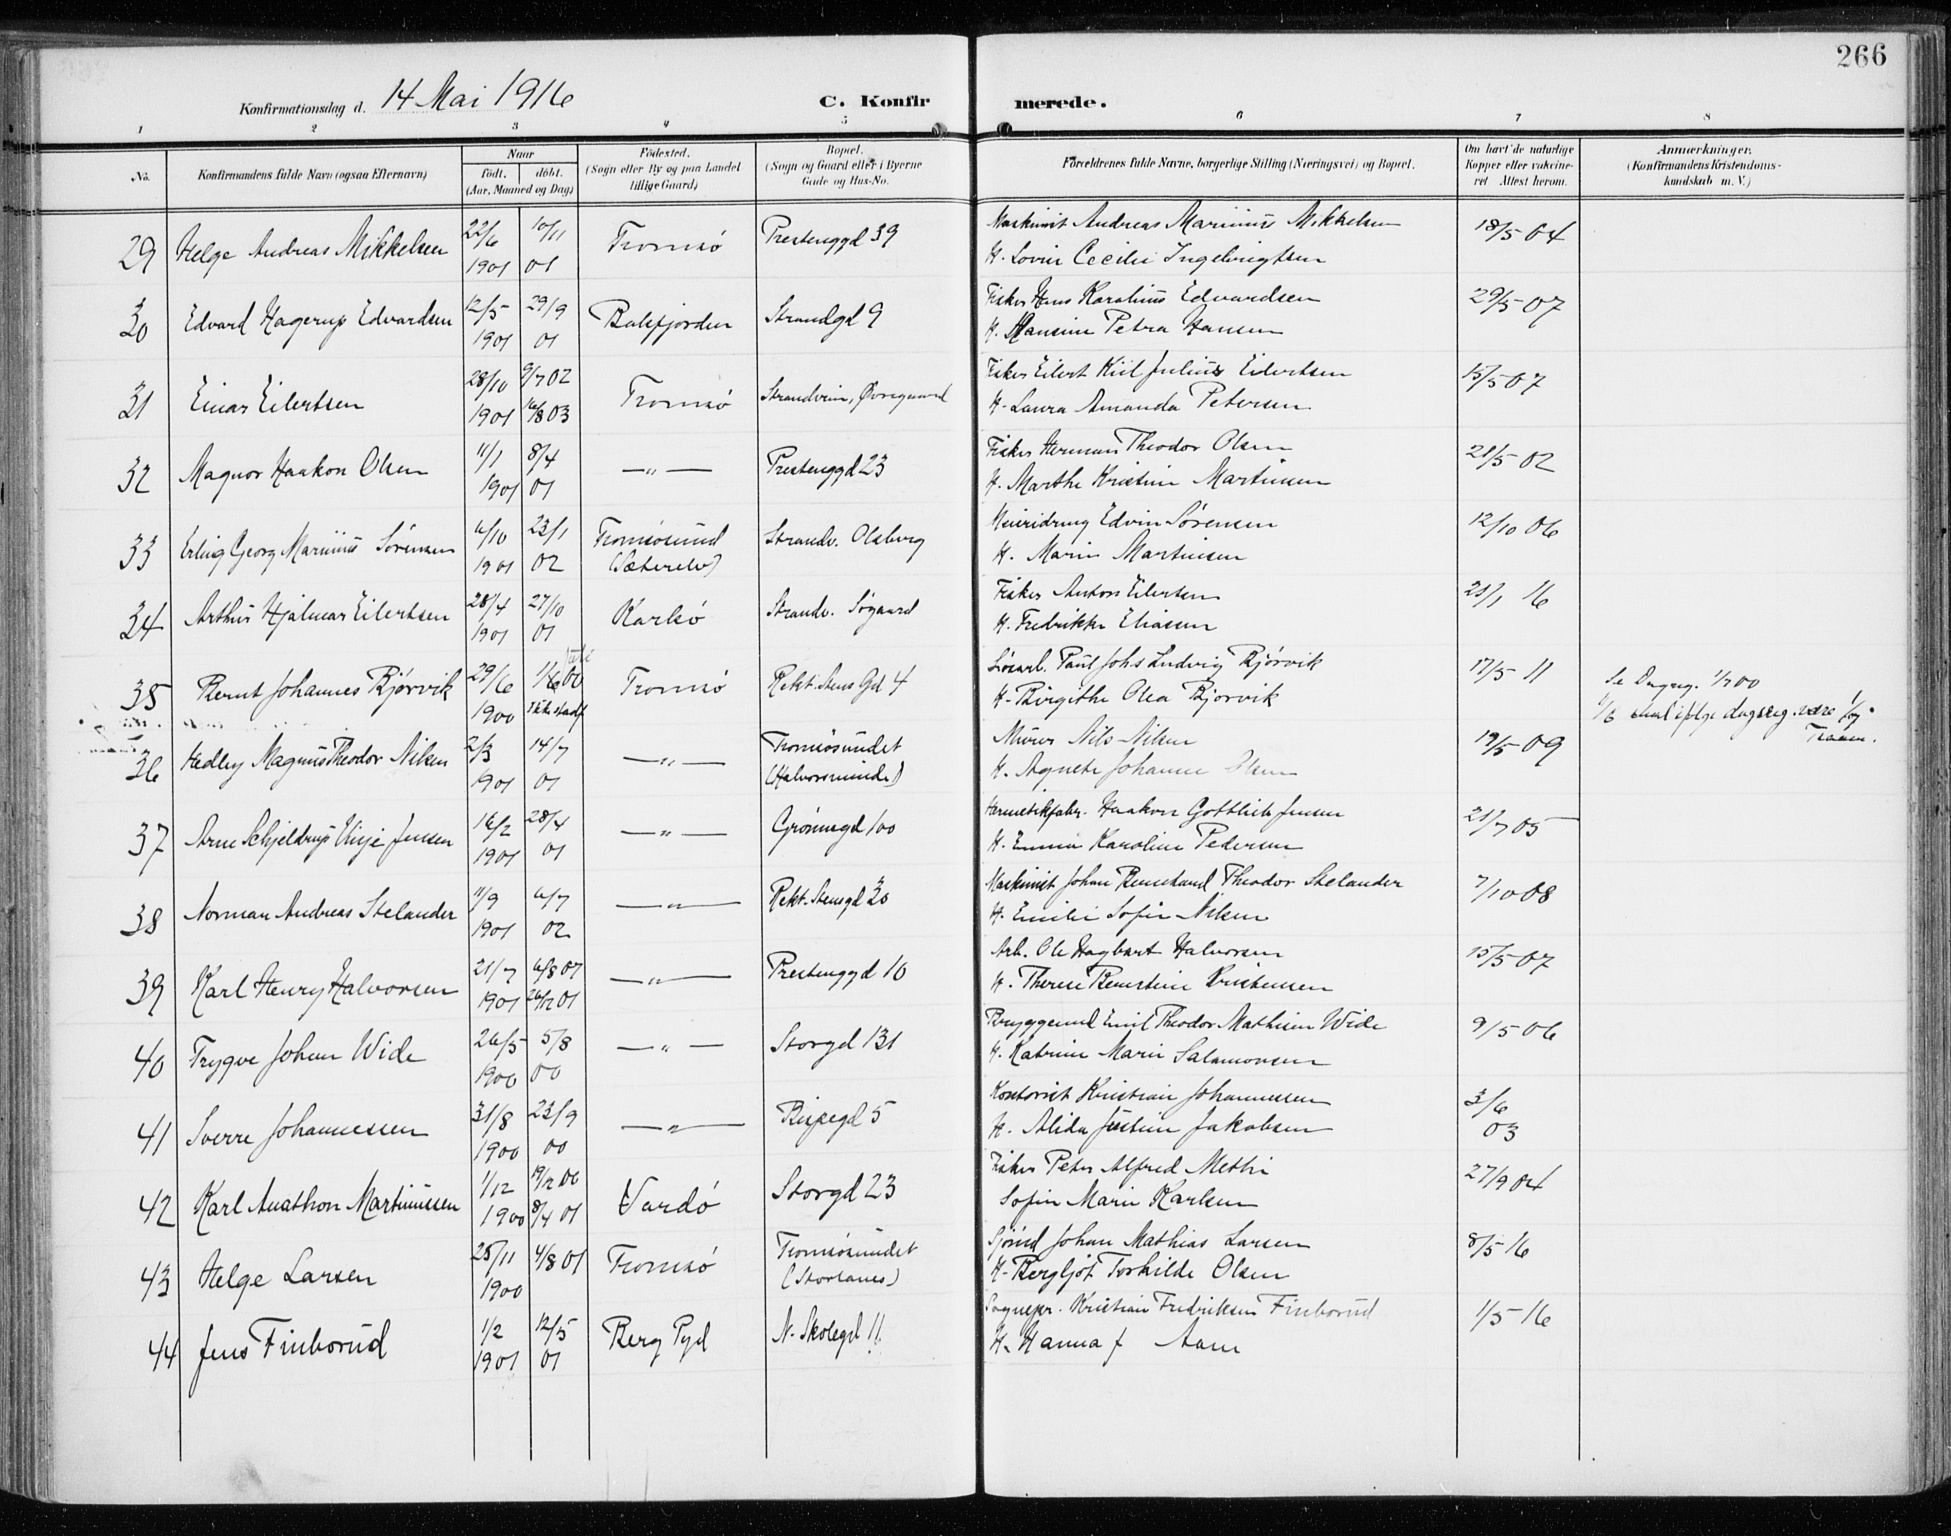 266
Konfirmationsdag d. 14 Mai 1916 C. Konfirmerede.
1 2 3 4 5 6 7 8
No. Konfirmandens fulde Navn (ogsaa Efternavn) Naar født. døbt. (Aar, Maaned og Dag) Fødested. (Sogn eller By og paa Landet tillige Gaard) Bopæl. (Sogn og Gaard eller i Byerne Gade og Hus-No. Forældrenes fulde Navne, borgerlige Stilling (Næringsvei) og Bopæl. Om havt de naturlige Kopper eller vakcineret Attest herom. Anmærkninger. (Konfirmandens Kristendomskundskab m. V.)
29 Helge Andreas Mikkelsen 22/6 1901 10/11 01 Tromsö Prestenggd 39 Maskinist Andreas Marinius Mikkelsen 18/5 04
H. Lovise Cecilie Ingebrigtsen
30 Edvard Hagerup Edvardsen 12/5 1901 29/9 01 Balsfjorden Strandgd 9 Fisker Hans Karolius Edvardsen 29/5 07
H. Hansine Petra Hansen
31 Einar Eilertsen 28/10 1901 9/7 02 16/8 03 Tromsö Strandvein, Øvregaard Fisker Eilert Kiil Julius Eilertsen 15/5 07
H. Laura Amanda Petersen
32 Magnor Haakon Olsen 11/1 1901 8/4 01 —"— Prestenggd 23 Fisker Herman Theodor Olsen 21/5 02
H. Marthe Kristine Martinsen
33 Erling Georg Marinius Sörensen 6/10 1901 23/1 02 Tromsösund (Sæterelv) Strandv. Olsborg Edvin Sörensen 12/10 06
H. Marie Martinsen
34 Arthur Hjalmar Eilertsen 28/4 1901 27/10 01 Karlsö Strandv. Søgaard Fisker Anton Eilertsen 21/1 16
H. Fredrikke Eliassen
35 Bernt Johannes Bjørvik 29/6 1900 1/6 00 Ikke stadf Tromsö Rekt. Stens Gd 4 Paul Johs Ludvig Bjørvik 17/5 11 Se Dagreg. 1/7 00
H. Birgithe Olea Bjørvik 1/6 skal ifølge dagreg. være
36 Hedley Magnus Theodor Nilsen 2/3 1901 14/7 01 —"— Tromsösundet (Halvorsminde) Murer Nils Nilsen 19/5 09
H. Agnete Johanne Olsen
37 Arne Schjeldrup Vinje Jensen 16/2 1901 28/4 01 —"— Grönnegd 100 Hermetikfabr. Haakon Gottlieb Jensen 21/7 05
H. Emma Karoline Pedersen
38 Norman Andreas Stelander 11/9 1901 6/7 02 —"— Rekt. Stensgd 20 Maskinist Johan Theodor Stelander 7/10 08
H. Emilie Sofie Nilsen
39 Karl Henry Halvorsen 21/7 1901 6/8 07 26/12 01 —"— Prestenggd 10 Arb. Ole Hagbart Halvorsen 15/5 07
H. Therese Bernstine Kristensen
40 Trygve Johan Wide 26/5 1900 5/8 00 —"— Storgd 131 Bryggemd Emil Theodor Mathisen Wide 9/5 06
H. Katrine Marie Salamonsen
41 Sverre Johannessen 31/8 1900 23/9 00 —"— Bispegd 5 Kontorist Kristian Johannessen 3/6 03
H. Alida Justine Jakobsen
42 Karl Anathon Martinussen 1/12 1900 19/12 00 8/4 01 Vardö Storgd 23 Fisker Peter Alfred Methi 27/9 04
Sofie Marie Karlsen
43 Helge Larsen 25/11 1900 4/8 01 Tromsö Tromsösundet (Storsanes) Sjömd Johan Mathias Larsen 8/5 16
H. Bergljot Torhilde Olsen
44 Jens Finborud 1/2 1901 12/5 01 Berg Pgd N. Skolegd 11 Sognepr. Kristian Fredriksen Finborud 1/5 16
H. Hanna f Aam